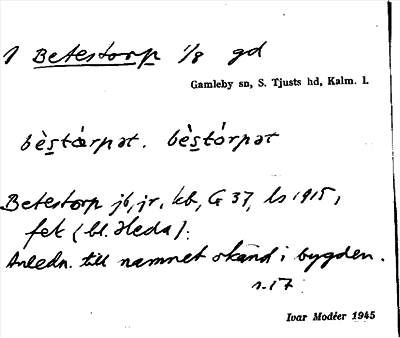 1 Betestorp 1/8 gd
Gamleby sn, S. Tjusts hd, Kalm. l.
bèstarpət. bèstórpət
Betestorp jb, jr, kb, G 37, ls 1915,
fek (bl. Heda).
Anledn. till namnet okänd i bygden.
s. 17
Ivar Modéer 1945